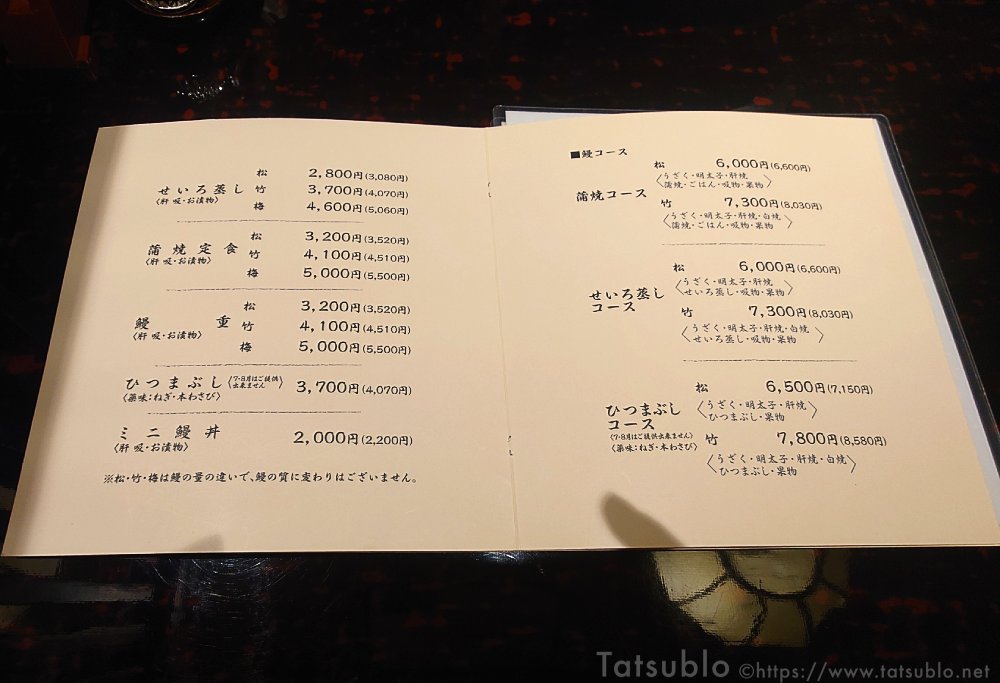 松 2,800円(3,080円)
せいろ蒸し 竹 3,700円(4,070円)
〈肝吸・お漬物〉
梅 4,600円(5,060円)
松 3,200円(3,520円)
蒲焼定食 竹 4,100円(4,510円)
〈肝吸・お漬物〉
梅 5,000円(5,500円)
松 3,200円(3,520円)
鰻重 竹 4,100円(4,510円)
〈肝吸・お漬物〉
梅 5,000円(5,500円)
ひつまぶし〈7・8月はご提供出来ません〉 3,700円(4,070円)
〈薬味:ねぎ・本わさび〉
ミニ鰻丼 2,000円(2,200円)
〈肝吸・お漬物〉
※松・竹・梅は鰻の量の違いで、鰻の質に変わりはございません。
■鰻コース
松 6,000円(6,600円)
〈うざく・明太子・肝焼
蒲焼・ごはん・吸物・果物〉
蒲焼コース
竹 7,300円(8,030円)
〈うざく・明太子・肝焼・白焼
蒲焼・ごはん・吸物・果物〉
松 6,000円(6,600円)
〈うざく・明太子・肝焼
せいろ蒸し・吸物・果物〉
せいろ蒸し
コース
竹 7,300円(8,030円)
〈うざく・明太子・肝焼・白焼
せいろ蒸し・吸物・果物〉
松 6,500円(7,150円)
〈うざく・明太子・肝焼
ひつまぶし・果物〉
ひつまぶし
コース
〈7・8月はご提供出来ません〉
〈薬味:ねぎ・本わさび〉
竹 7,800円(8,580円)
〈うざく・明太子・肝焼・白焼
ひつまぶし・果物〉
Tatsublo ©https://www.tatsublo.net